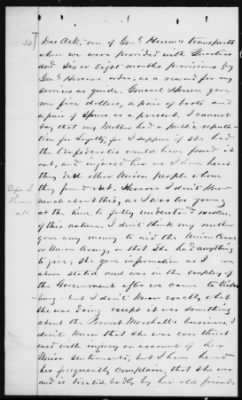 Des Arc, on of Genl Herron's transports
when we were provided with
and six or eight months provisions by
Genl Herron's order, as a reward for my
services as guide. General Herron gave
me five dollars, a pair of boots and
a pair of spurs as a present. I cannot
say that my Mother had a public reputa-
tion for loyalty, for I suppose if she had
the Confederates would have found it
out, and injured her as I have heard
they did other Union people whom
they found out. However I don't know
much about this, as I was too young
at the time to fully understand matters
of this nature. I don't think my mother
gave any money to aid the Union cause
or Union Army, or that she had anything
to give. She gave information as I
above stated and was in the employ of
the Government after we came to
but I don't know exactly what
she was doing except it was something
about the Provost Marshall's business. I
don't know that she was ever threat-
ened with injury on account of her
Union sentiments, but I have heard
her frequently complain, that she was
badly by her old friends